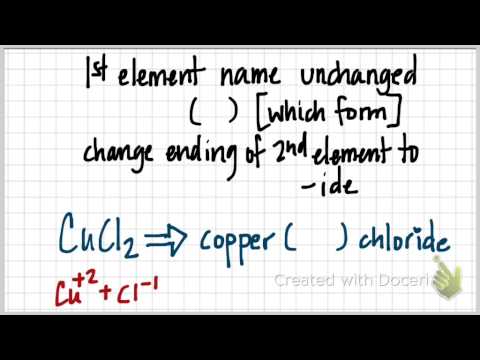 1st element name unchanged
( ) [which form]
change ending of 2nd element to
-ide
CuCl₂ ⇒ copper ( ) chloride
Created with Doceri
Cu⁺² + Cl⁻¹